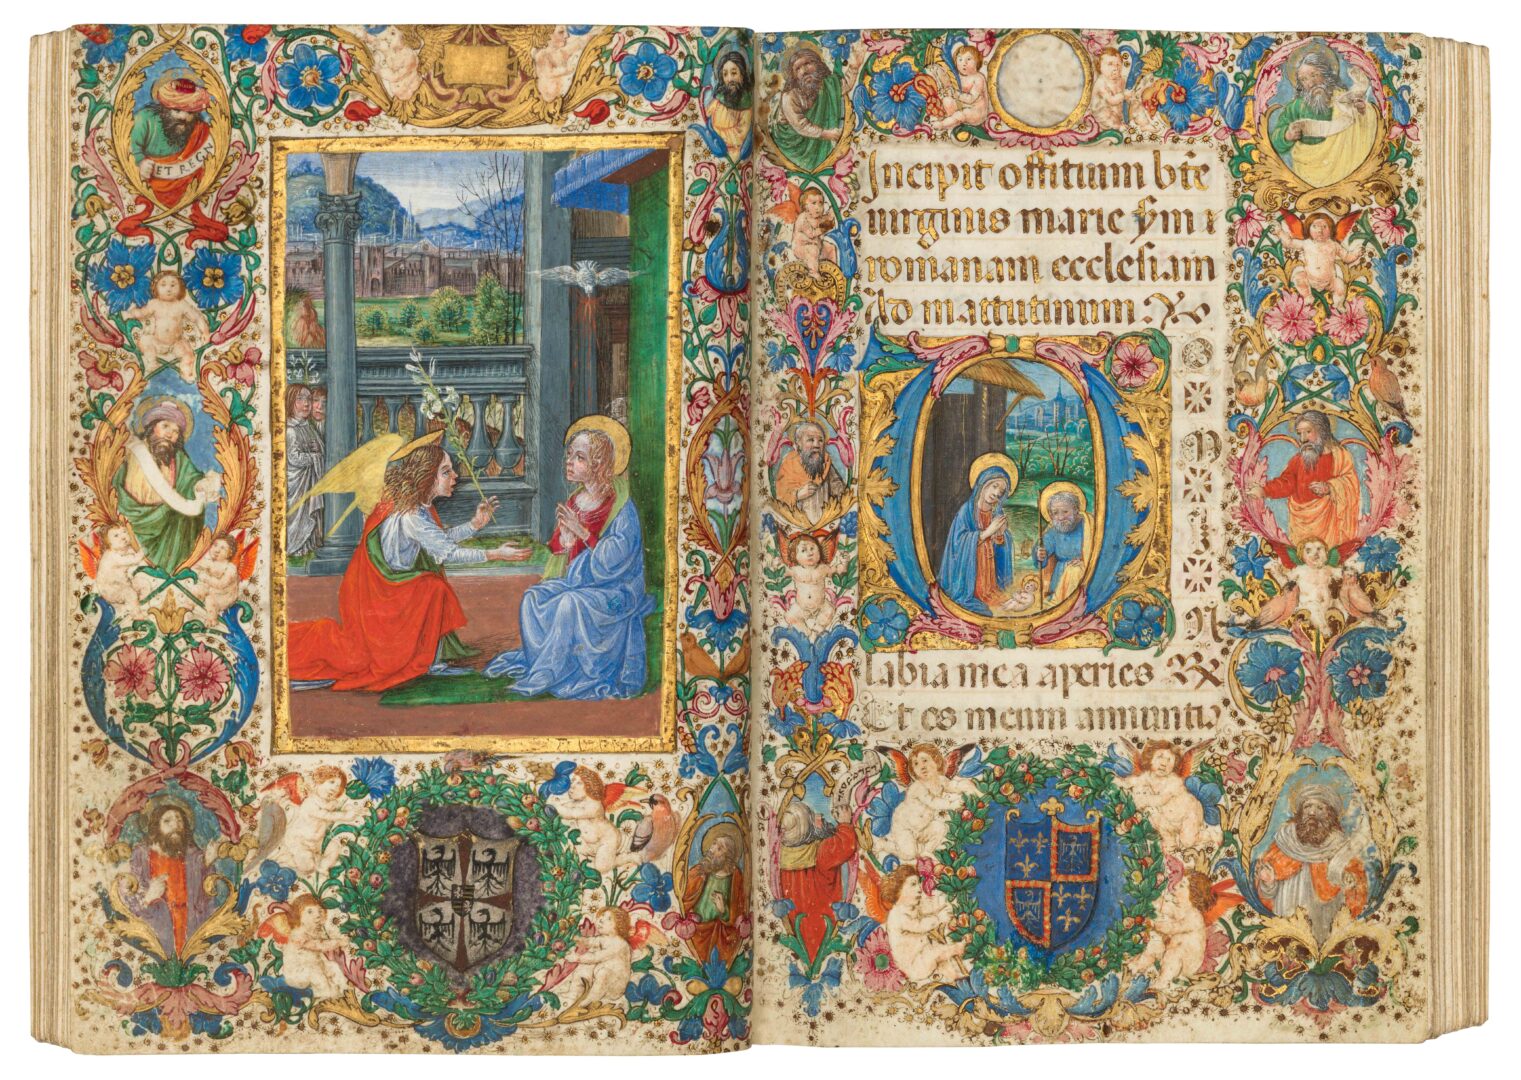 ET REGN
Incipit offitium bte
uirginis marie ſm r
romanam eccleſiam
Ad mattutinum
O
M
I
N
labia mea aperies
Et os meum annuntia